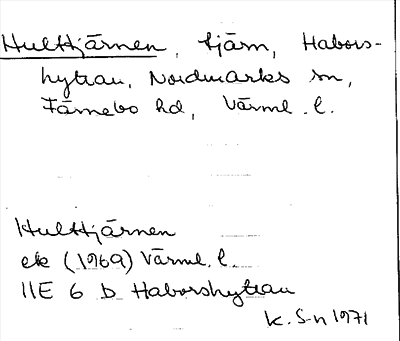 Hulttjärnen, tjärn, Habors-
hyttan, Nordmarks sn,
Färnebo hd, Värml. l.
Hulttjärnen
ek (1969) Värml. l.
11E 6 b Haborshyttan
K. S-n 1971